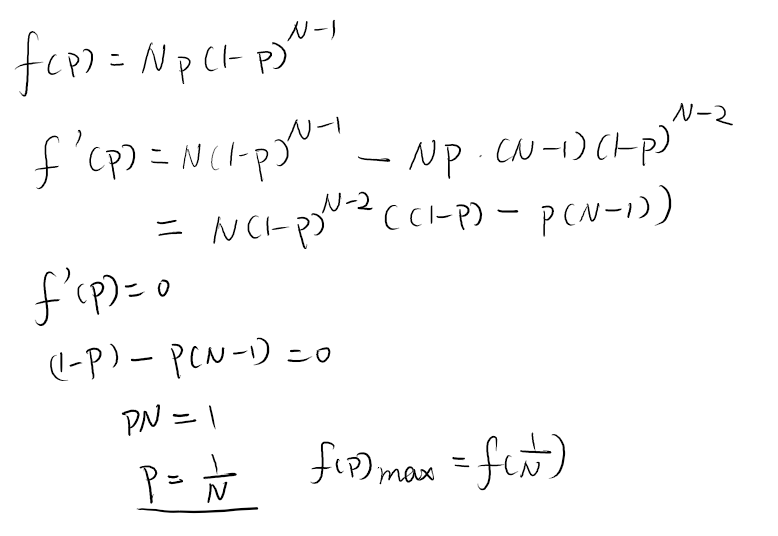 f(p) = Np(1-p)^{N-1}
f'(p) = N(1-p)^{N-1} - Np·(N-1)(1-p)^{N-2}
= N(1-p)^{N-2}((1-p) - p(N-1))
f'(p) = 0
(1-p) - p(N-1) = 0
pN = 1
p = 1/N f(p)max = f(1/N)